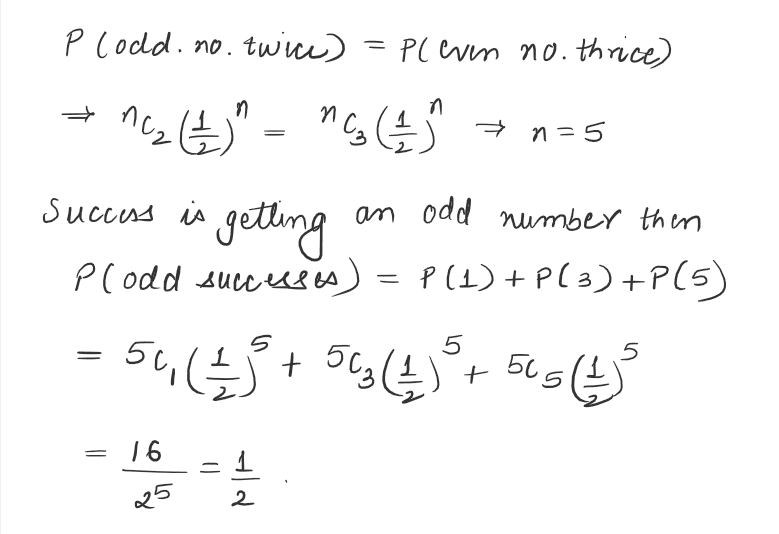 P (odd. no. twice) = P( even no. thrice)
⇒ nC₂(1/2)ⁿ = ⁿC₃(1/2)ⁿ ⇒ n = 5
Success is getting an odd number then
P( odd successes) = P(1) + P(3) + P(5)
= 5C₁(1/2)⁵ + 5C₃(1/2)⁵ + 5C₅(1/2)⁵
= 16/2⁵ = 1/2.